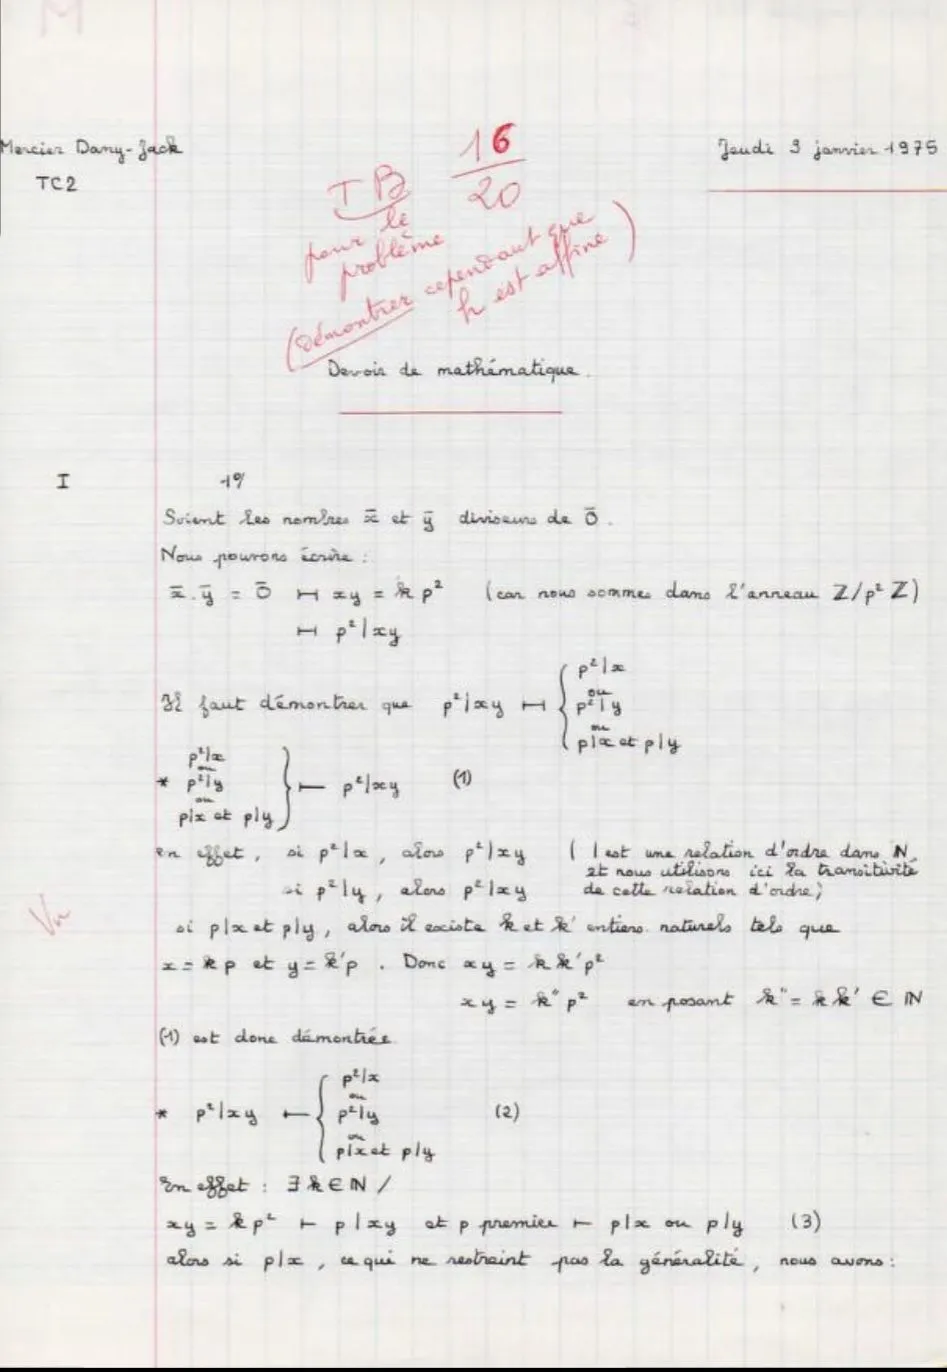 Mercier Dany-Jack
TC2
16
20
Jeudi 9 janvier 1975
TB
pour le
problème
(démontrer cependant que
h est affine)
Devoir de mathématique.
I 1°/
Soient les nombres x̄ et ȳ diviseurs de 0̄.
Nous pouvons écrire :
x̄.ȳ = 0̄ ⊢⊣ xy = k p² (car nous sommes dans l'anneau Z/p² Z)
⊢⊣ p²|xy
Il faut démontrer que p²|xy ⊢⊣ { p²|x
ou
p²|y
ou
p|x et p|y
* p²|x
ou
p²|y
ou
p|x et p|y } ⊢ p²|xy (1)
en effet, si p²|x, alors p²|xy ( | est une relation d'ordre dans N,
et nous utilisons ici la transitivité
si p²|y, alors p²|xy de cette relation d'ordre)
Vu
si p|x et p|y, alors il existe k et k' entiers naturels tels que
x = kp et y = k'p. Donc xy = kk'p²
xy = k"p² en posant k" = kk' ∈ N
(1) est donc démontrée
* p²|xy ⊢ { p²|x
ou
p²|y
ou
p|x et p|y (2)
En effet : ∃ k ∈ N /
xy = kp² ⊢ p|xy et p premier ⊢ p|x ou p|y (3)
alors si p|x, ce qui ne restraint pas la généralité, nous avons :